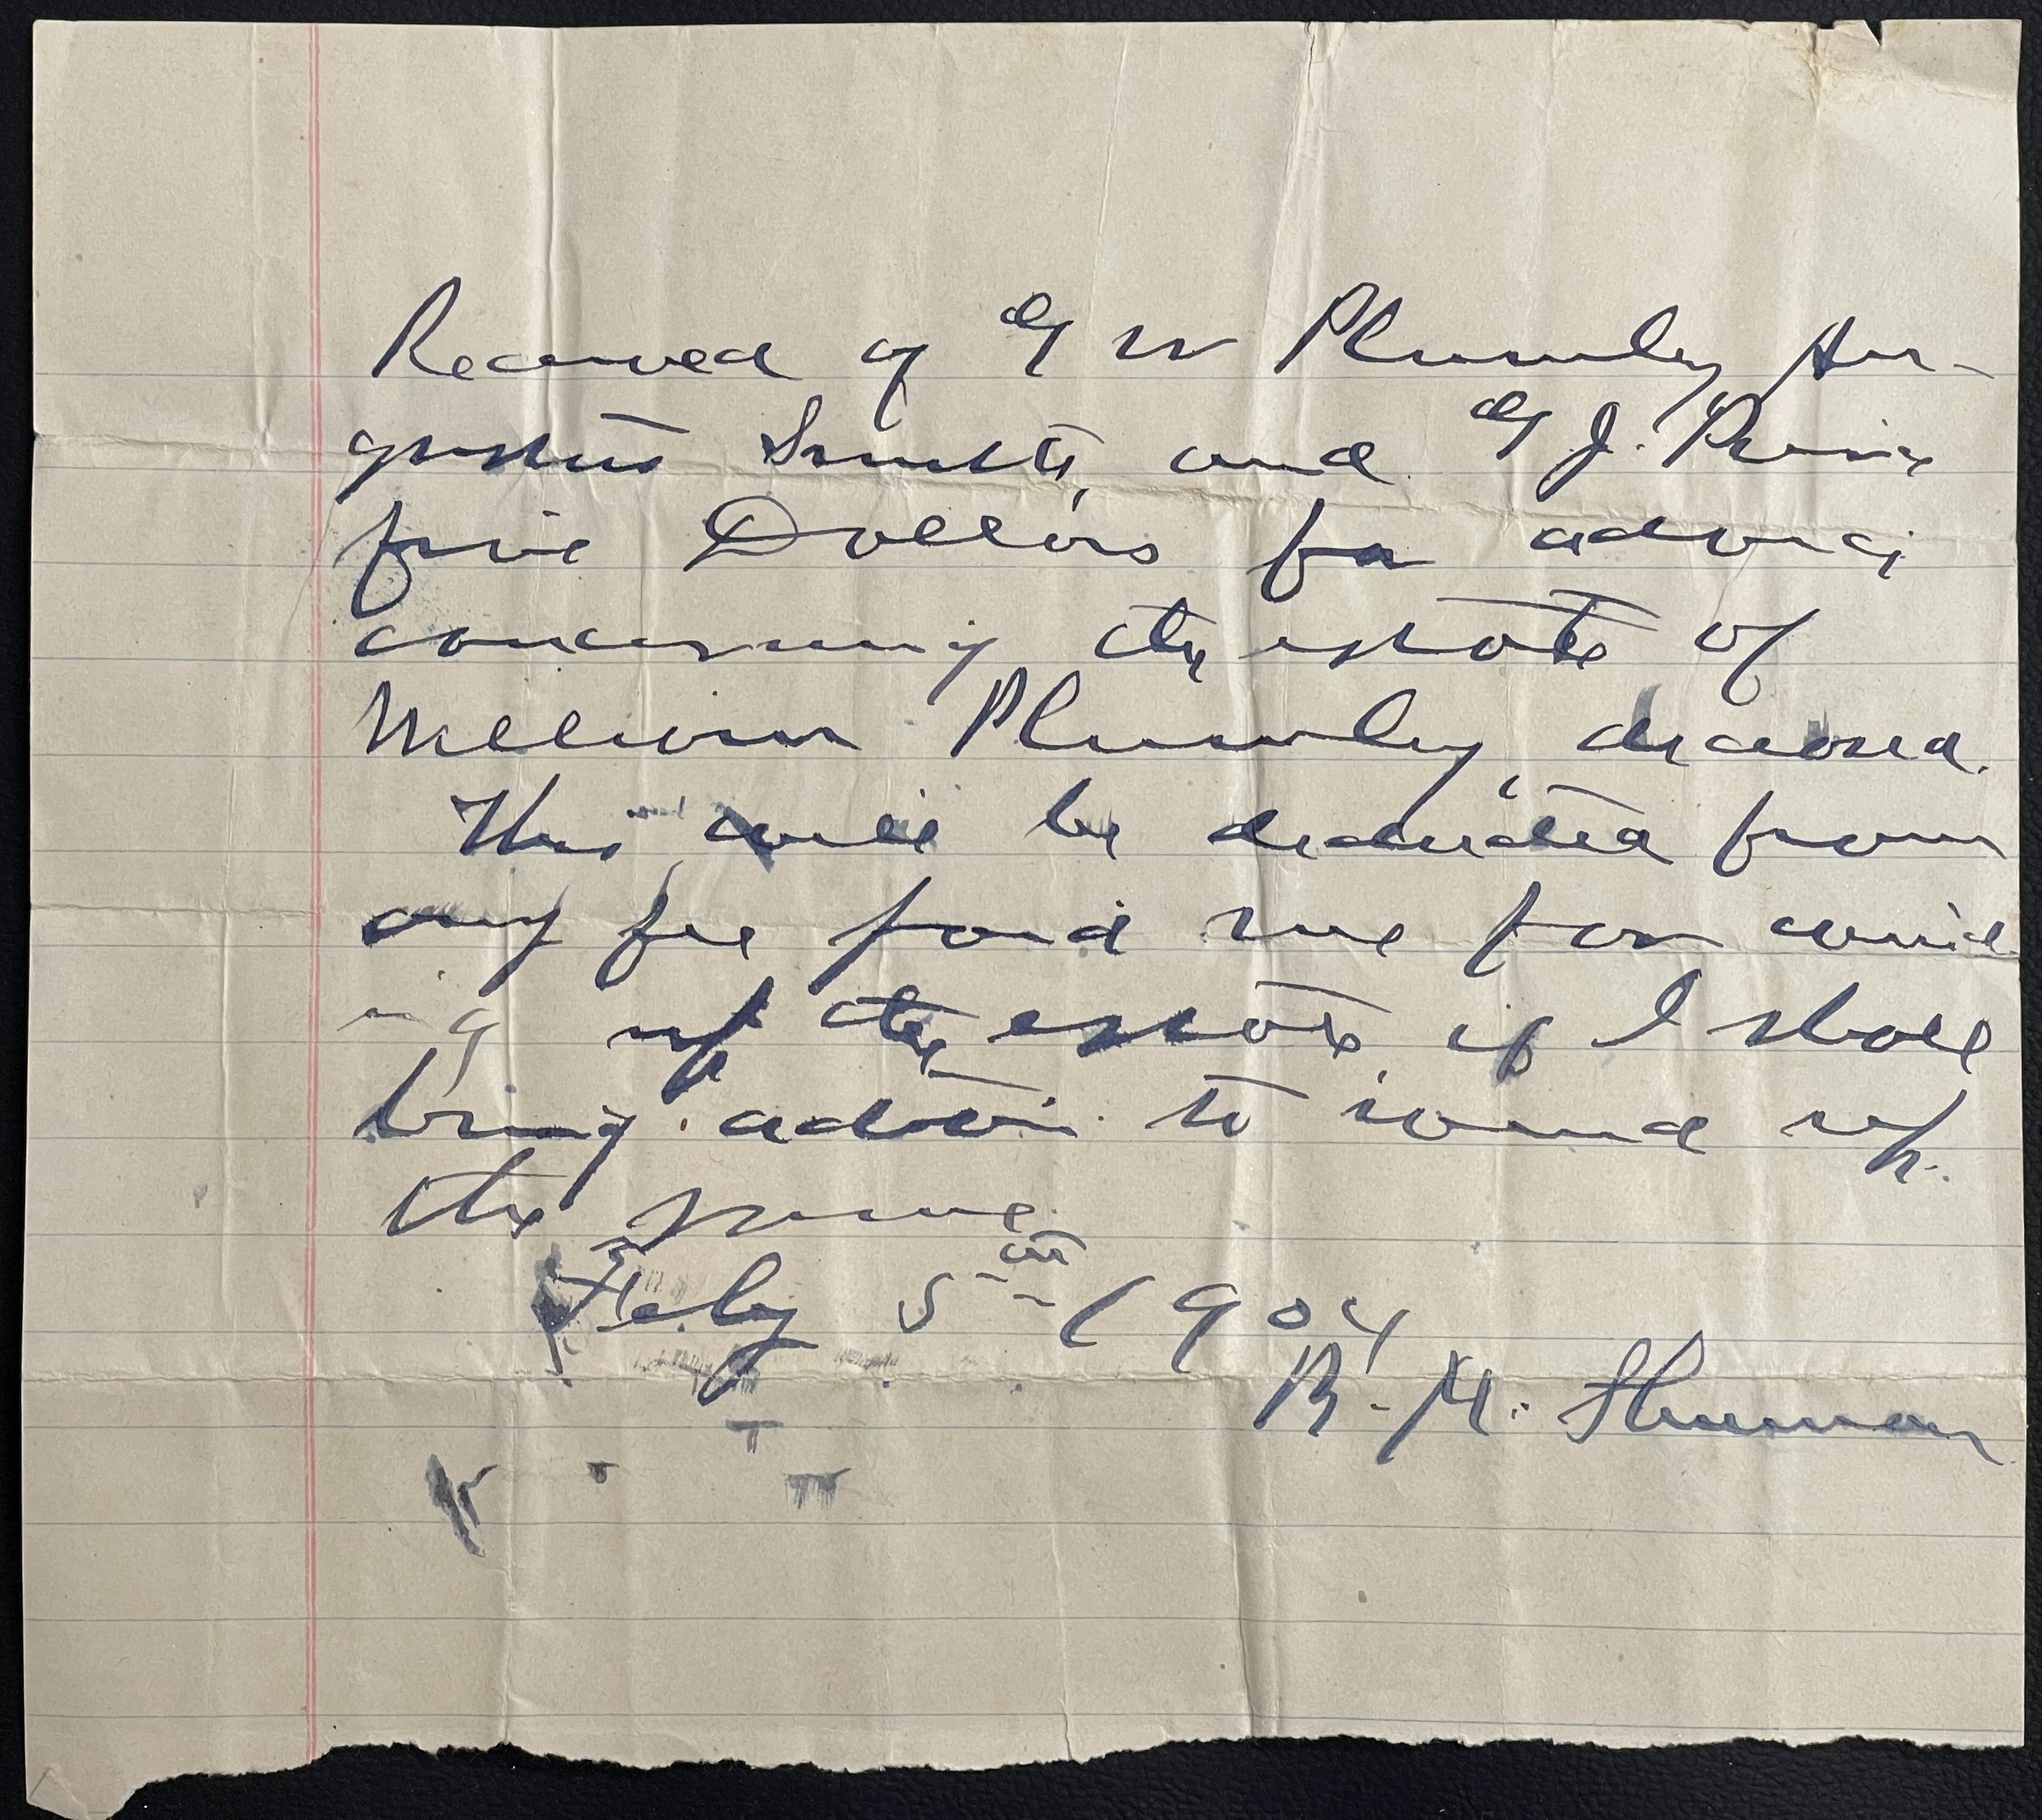 Received of G W Plumley Au-
gustus Smith, and G J. Price
five Dollars for advice
concerning the estate of
William Plumley, deceased.
This will be deducted from
any fee paid me for wind-
ing up the estate, if I shall
bring action to wind up
the same.
Feby 5th 1904
R. M. Shuman